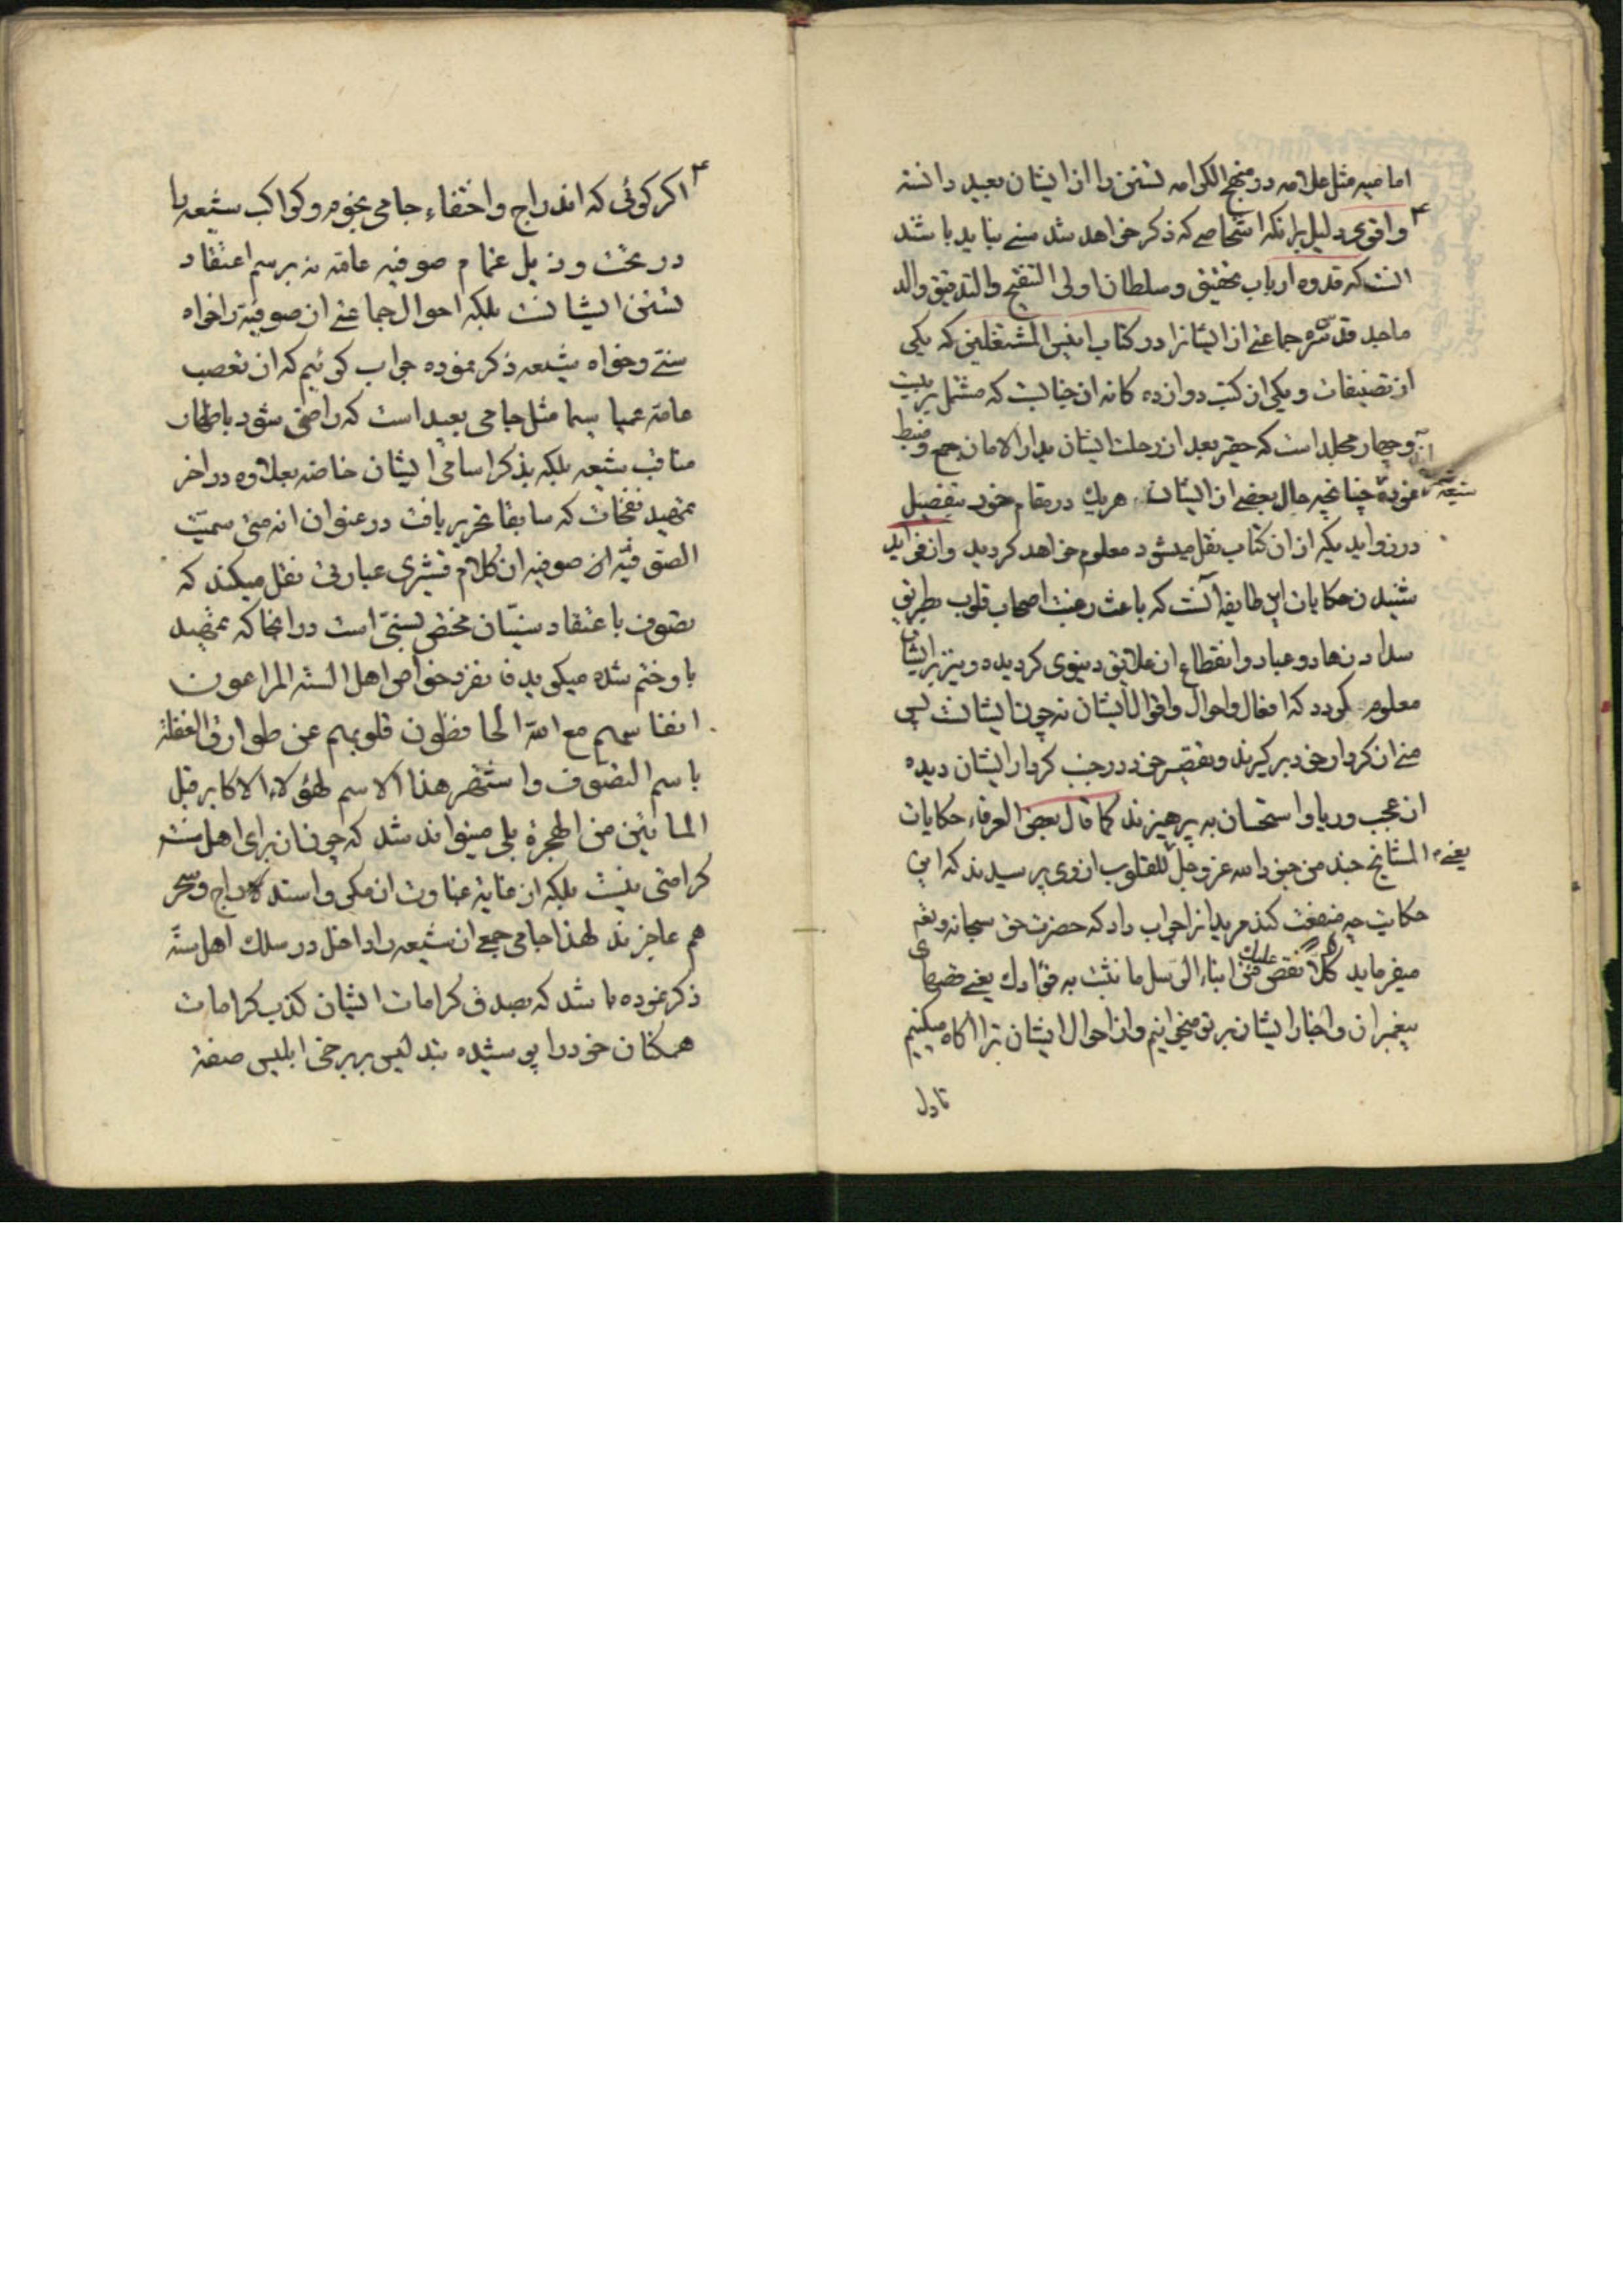 امامیه مثل علامه در منهج الکرامه تسنن را از ایشان بعید دانسته
واقوی دلیل برانکه اشخاصے که ذکر خواهد شد سنے نباید باشند
انست که قدوه ارباب تحقیق و سلطان اولی التنقیح والتدقیق والد
ماجد قدس سره جماعتے از ایشانرا در کتاب انیس المشتغلین که یکی
از تصنیفات و یکی از کتب دوازده کانه ان جنابست که مشتمل بر بیست
وچهار مجلد است که حقیر بعد از رحلت ایشان بدار الامان جمع وضبط
نموده چنانچه حال بعضے از ایشان هریك در مقام خود بتفصیل
شیعه
در زوایدیکه از ان کتاب نقل میشود معلوم خواهد کردید وازفواید
شنیدن حکایات این طایفه آنست که باعث رغبت اصحاب قلوب بطریق
سداد زهاد وعباد وانقطاع از علایق دنیوی کردیده ونیز برایشان
معلوم کردد که افعال واحوال واقوال ایشان نه چون ایشانست پس
منے از کردار خود برکیرند وتقصیر خود در جنب کردار ایشان دیده
از عجب وریا واستحسان به پرهیزند کما قال بعض العرفاء حکایات
المشایخ جند من جنود الله عز وجل للقلوب از وی پرسیدند که این
یعنے
حکایت چه منفعت کند مریدانرا جواب داد که حضرت حق سبحانه وتعم
میفرماید کلاً نقص علیك من انباء الرسل ما نثبت به فؤادك یعنے قصهای
پیغمبران واخبار ایشان برتو میخوانیم واز احوال ایشان ترا اکاه میکنیم
تا دل
اکر کوئی که اندراج واختفاء جامی نجوم و کواکب شیعه را
در تحت و ذیل غمام صوفیه عامه نه برسم اعتقاد
تسنن ایشانست بلکه احوال جماعتے از صوفیه را خواه
سنے وخواه شیعه ذکر نموده جواب کوئیم که از تعصب
عامه عمیا سیما مثل جامی بعید است که راضی شود باظهار
مناقب شیعه بلکه بذکر اسامی ایشان خاصه بعلاوه در اخر
تمهید نفحات که سابقا تحریر یافت در عنوان انه متی سمیّت
الصوفیّه از صوفیه از کلام قشیری عبارتی نقل میکند که
تصوف باعتقاد سنیّان مختص بسنیّ است در انجا که تمهید
باو ختم شده میکوید فانفرد خواص اهل السنه المراعون
انفاسهم مع الله الحافظون قلوبهم عن طوارق الغفلة
باسم التصوف واشتهر هذا الاسم لهؤلاء الاکابر قبل
المأتین من الهجرة بلی میتواند شد که چونان برای اهل سنت
کرامتی نیست بلکه از غایة غباوت از مکر واستدراج وسحر
هم عاجزند لهذا جامی جمعے از شیعه را داخل در سلك اهل سنّه
ذکر نموده باشد که بصدق کرامات ایشان کذب کرامات
همکنان خود را پوشیده بتدلیس بر برخی ابلیس صفة